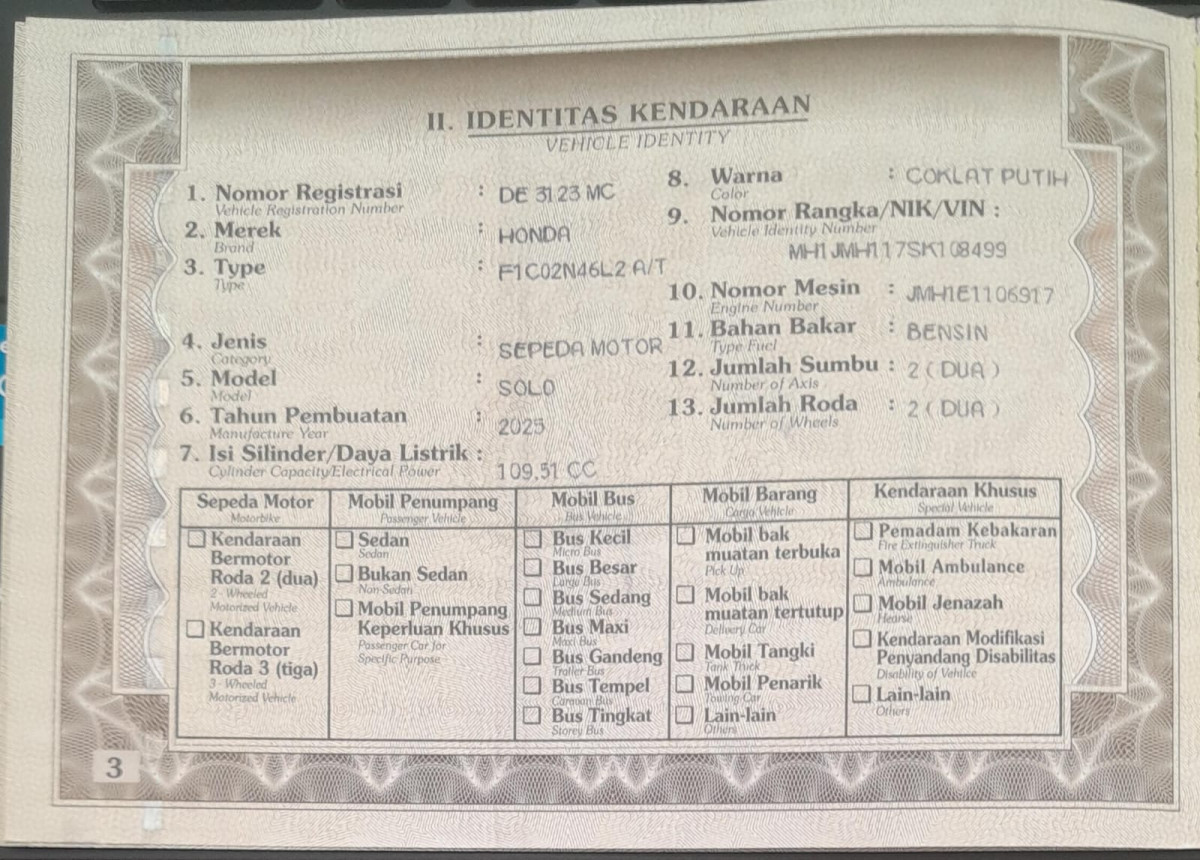 II. IDENTITAS KENDARAAN
VEHICLE IDENTITY
1. Nomor Registrasi : DE 3123 MC
Vehicle Registration Number
2. Merek : HONDA
Brand
3. Type : F1C02N46L2 A/T
Type
4. Jenis : SEPEDA MOTOR
Category
5. Model : SOLO
Model
6. Tahun Pembuatan : 2025
Manufacture Year
7. Isi Silinder/Daya Listrik : 109,51 CC
Cylinder Capacity/Electrical Power
8. Warna : COKLAT PUTIH
Color
9. Nomor Rangka/NIK/VIN :
Vehicle Identity Number
MH1JMH117SK108499
10. Nomor Mesin : JMH1E1106917
Engine Number
11. Bahan Bakar : BENSIN
Type Fuel
12. Jumlah Sumbu : 2 ( DUA )
Number of Axis
13. Jumlah Roda : 2 ( DUA )
Number of Wheels
Sepeda Motor
Motorbike
Kendaraan
Bermotor
Roda 2 (dua)
2 - Wheeled
Motorized Vehicle
Kendaraan
Bermotor
Roda 3 (tiga)
3 - Wheeled
Motorized Vehicle
Mobil Penumpang
Passenger Vehicle
Sedan
Sedan
Bukan Sedan
Non-Sedan
Mobil Penumpang
Keperluan Khusus
Passenger Car for
Specific Purpose
Mobil Bus
Bus Vehicle
Bus Kecil
Micro Bus
Bus Besar
Large Bus
Bus Sedang
Medium Bus
Bus Maxi
Maxi Bus
Bus Gandeng
Trailer Bus
Bus Tempel
Caravan Bus
Bus Tingkat
Storey Bus
Mobil Barang
Cargo Vehicle
Mobil bak
muatan terbuka
Pick Up
Mobil bak
muatan tertutup
Delivery Car
Mobil Tangki
Tank Truck
Mobil Penarik
Towing Car
Lain-lain
Others
Kendaraan Khusus
Special Vehicle
Pemadam Kebakaran
Fire Extinguisher Truck
Mobil Ambulance
Ambulance
Mobil Jenazah
Hearse
Kendaraan Modifikasi
Penyandang Disabilitas
Disability of Vehilce
Lain-lain
Others
3